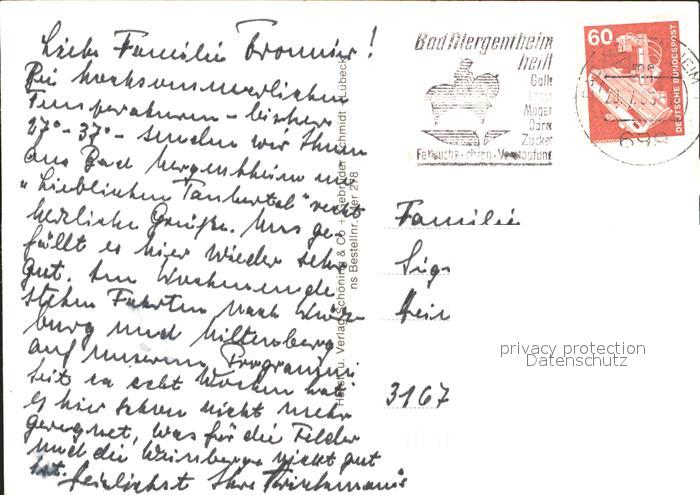 Liebe Familie Brommer!
Bei hochsommerlichen
Temperaturen - bisher
27° - 37° - senden wir Ihnen
aus Bad Mergentheim im
"Lieblichen Taubertal" recht
herzliche Grüße. Uns ge-
fällt es hier wieder sehr
gut. Am Wochenende
stehen Fahrten nach Würz-
burg und Miltenberg
auf unserem Programm.
Seit ca acht Wochen hat
es hier schon nicht mehr
geregnet, was für die Felder
und die Weinberge nicht gut
ist. Herzlichst Ihre
Verlag Schöning & Co + Gebrüder Schmidt · Lübeck
ns Bestellnr.
278
Bad Mergentheim
heilt
Galle
Leber
Magen
Darm
Zucker
Fettsucht
Verstopfung
60
DEUTSCHE BUNDESPOST
Familie
3167
privacy protection
Datenschutz